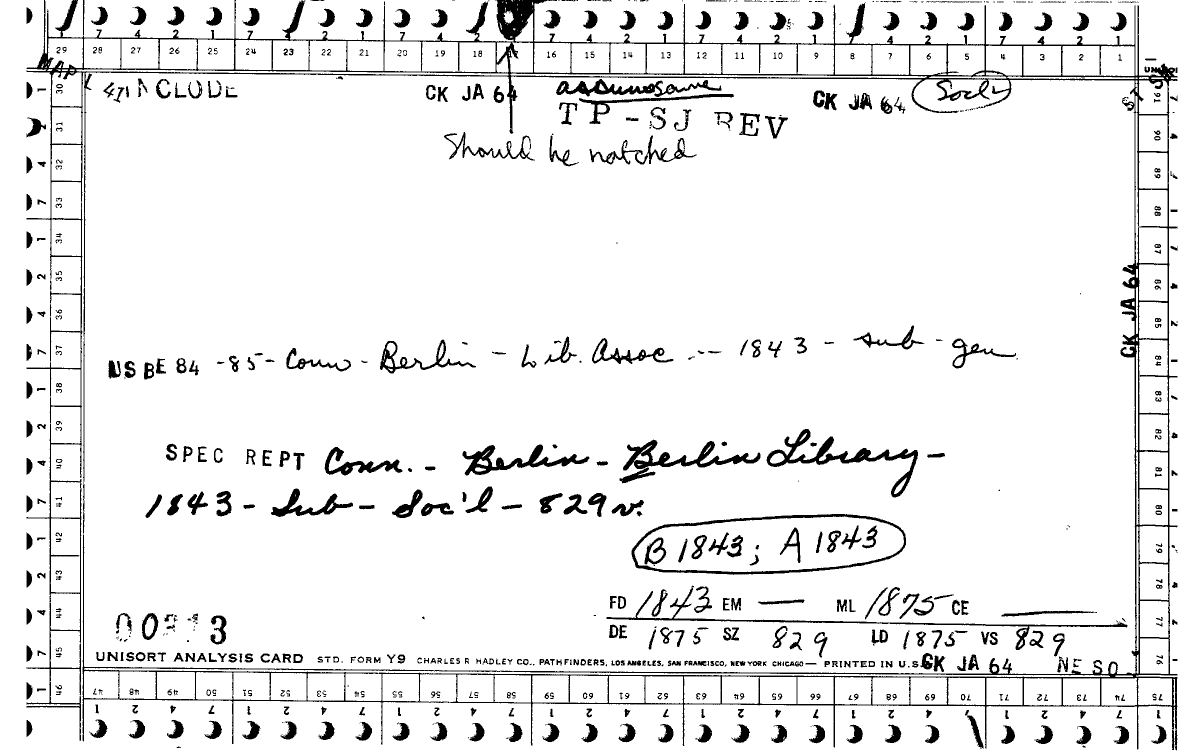 7 4 2 1 7 4 2 1 7 4 2 1 7 4 2 1 7 4 2 1 7 4 2 1 7 4 2 1
29 28 27 26 25 24 23 22 21 20 19 18 17 16 15 14 13 12 11 10 9 8 7 6 5 4 3 2 1
MAP
INCLUDE CK JA 64 assumosame CK JA 64 Socl
TP-SJ REV
Should be notched
CK JA 64
US BE 84 -85- Conn - Berlin - Lib. Assoc -- 1843 - sub - gen
SPEC REPT Conn. - Berlin - Berlin Library -
1843 - Sub - Soc'l - 829 v.
B 1843; A 1843
FD 1843 EM — ML 1875 CE —
DE 1875 SZ 829 LD 1875 VS 829
00313
UNISORT ANALYSIS CARD STD. FORM Y9 CHARLES R HADLEY CO., PATHFINDERS, LOS ANGELES, SAN FRANCISCO, NEW YORK CHICAGO — PRINTED IN U.S. CK JA 64 NE SO
30 31 32 33 34 35 36 37 38 39 40 41 42 43 44 45 46
91 90 89 88 87 86 85 84 83 82 81 80 79 78 77 76
47 48 49 50 51 52 53 54 55 56 57 58 59 60 61 62 63 64 65 66 67 68 69 70 71 72 73 74 75
1 2 4 7 1 2 4 7 1 2 4 7 1 2 4 7 1 2 4 7 1 2 4 7 1 2 4 7 1